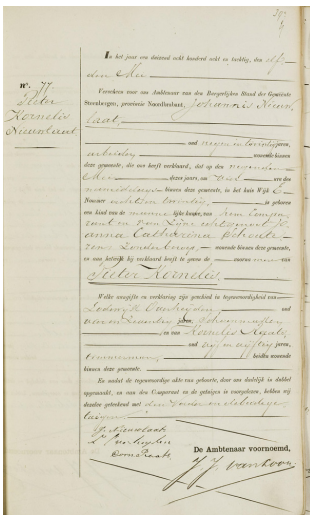 nº. 77.
Pieter
Kornelis
Nieuwlaat
In het jaar een duizend acht honderd acht en tachtig, den elfden
Mei
Verscheen voor ons Ambtenaar van den Burgerlijken Stand der Gemeente
Steenbergen, provincie Noordbrabant, Johannis Nieuw
laat,
oud negen en twintig jaren,
arbeider, wonende binnen
deze gemeente, die ons heeft verklaard, dat op den negenden
Mei dezes jaars, ten vier ure des
namiddags binnen deze gemeente, in het huis Wijk E
Nommer achttien, is geboren
een kind van de mannelijke kunne, van hem Compa-
rant en van zijne echtgenoot Jo-
anna Catharina
wonende binnen deze gemeente,
en aan hetwelk hij verklaard heeft te geven de voornamen van
Pieter Kornelis.
Welke aangifte en verklaring zijn geschied in tegenwoordigheid van
Lodewijk oud
jaren,
en van Kornelis Raats,
oud vijf en vijftig jaren,
timmerman, beiden wonende
binnen deze gemeente.
En nadat de tegenwoordige akte van geboorte, door ons dadelijk in dubbel
opgemaakt, en aan den Comparant en de getuigen is voorgelezen, hebben wij
dezelve geteekend met den vader en de beide ge-
tuigen.
J. Nieuwlaat
Corn. Raats
De Ambtenaar voornoemd,
J. J. van Loon